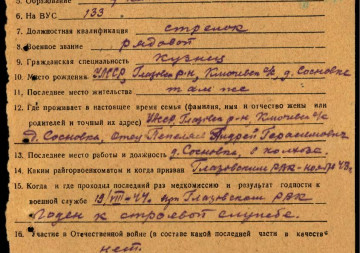 5. Образование
6. На ВУС 133
7. Должностная квалификация стрелок
8. Военное звание рядовой
9. Гражданская специальность кузнец
10. Место рождения УАССР, Глазов. р-н, с/с, д. Сосновка
11. Последнее место жительства там же
12. Где проживает в настоящее время семья (фамилия, имя и отчество жены или
родителей и точный их адрес) УАССР, Глазов. р-н с/с
д. Сосновка, отец Андрей Герасимович
13. Последнее место работы и должность д. Сосновка, в колхозе
14. Каким райгорвоенкоматом и когда призван Глазовским РВК
15. Когда и где проходил последний раз медкомиссию и результат годности к
военной службе 19/VIII-44 г. при Глазовском РВК
Годен к строевой службе.
16. Участие в Отечественной войне (в составе какой последней части в качестве
нет